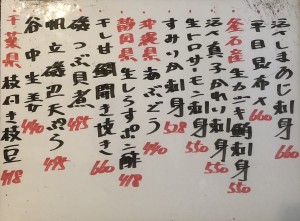 活〆しまあじ刺身 660
平目昆布〆 660
釜石産生カツオ刺身 550
活〆真子かれい刺身 550
生トロサーモン刺身 550
すみいか刺身 528
沖縄県海ぶどう 440
静岡県生しらすポン酢 418
干し甘鯛開き焼き 660
磯つぶ貝煮 495
帆立磯辺天ぷら 495
谷中生姜 440
千葉県枝付き枝豆 418